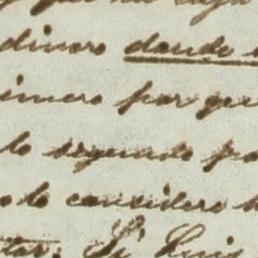 dinero donde
imero por que
lo segundo po
lo considero
tar. Si Luis